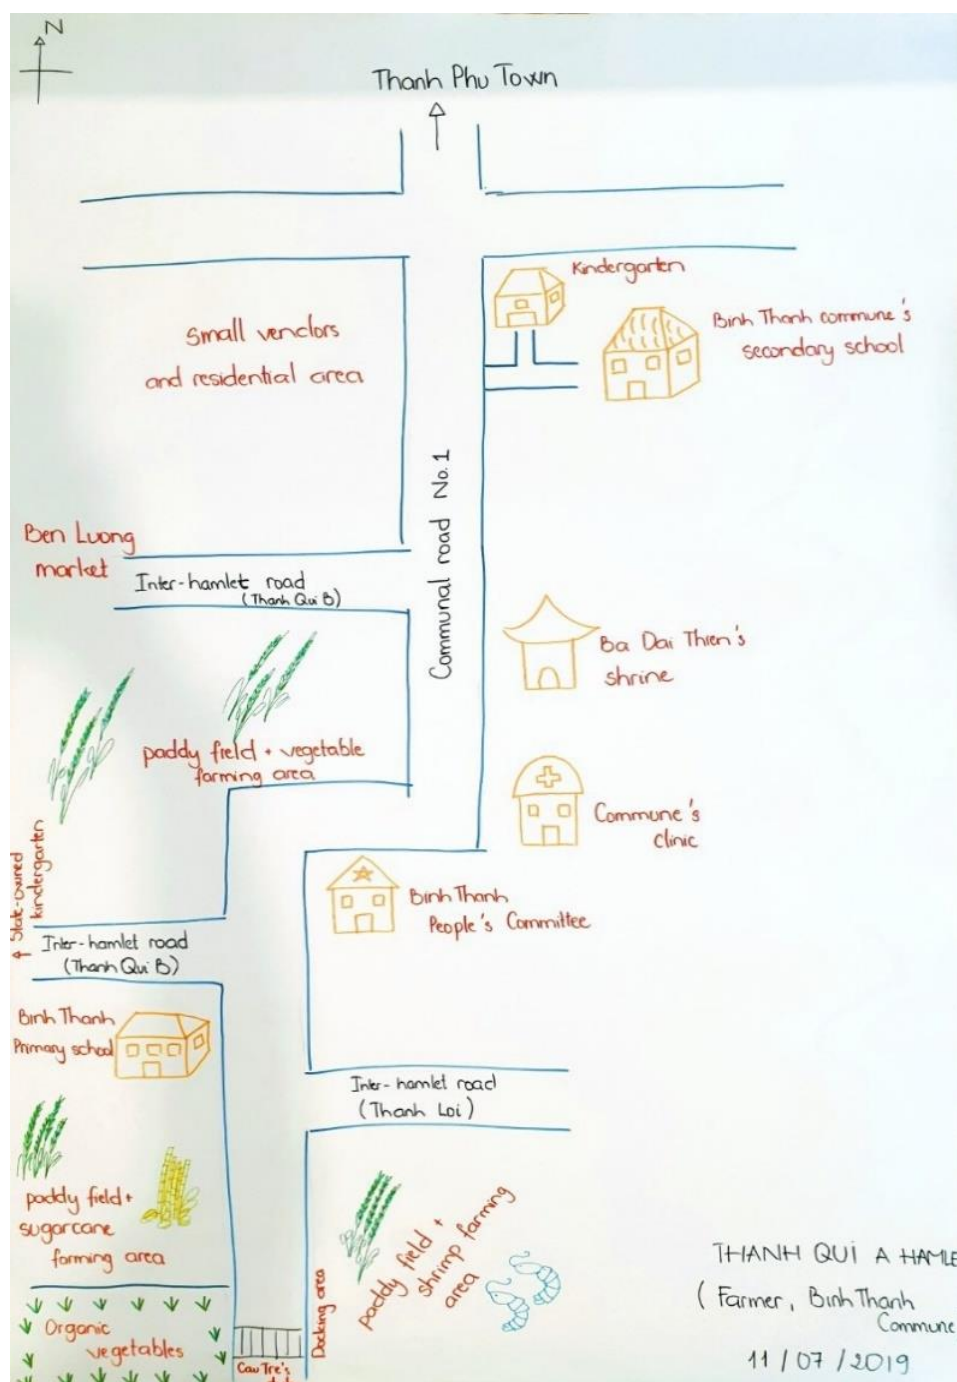 N
Thanh Phu Town
Kindergarten
Binh Thanh commune's
secondary school
Small vendors
and residential area
Communal road No.1
Ben Luong
market
Inter-hamlet road
(Thanh Qui B)
Ba Dai Thien's
shrine
paddy field + vegetable
farming area
Commune's
clinic
State-owned
kindergarten
Binh Thanh
People's Committee
Inter-hamlet road
(Thanh Qui B)
Binh Thanh
Primary school
Inter-hamlet road
(Thanh Loi)
paddy field +
sugarcane
farming area
paddy field +
shrimp farming
area
Docking area
Organic
vegetables
Cau Tre's
THANH QUI A HAMLE
(Farmer, Binh Thanh
Commune
11/07/2019